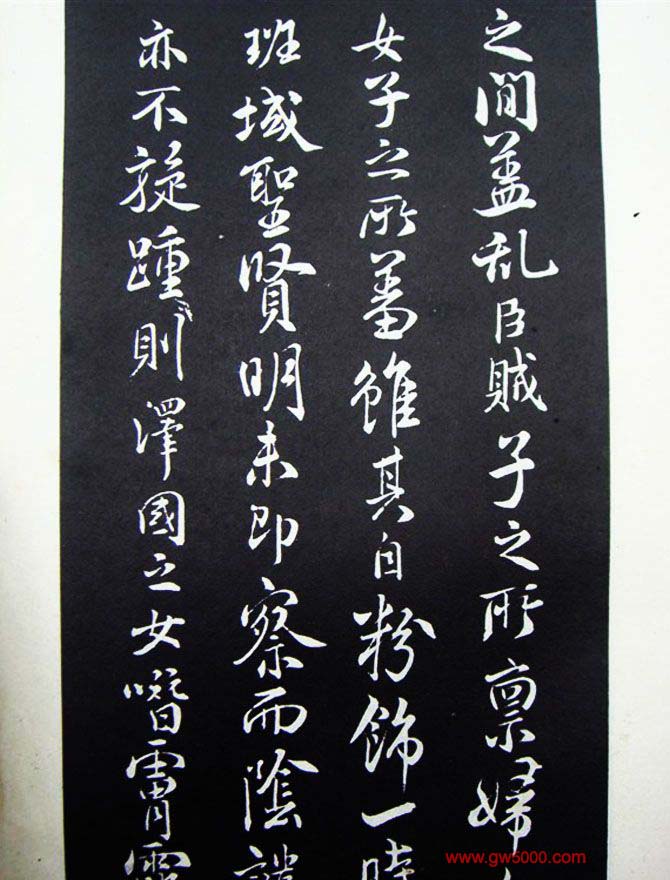 之间盖乱臣賊子之所禀婦
女子之所蓄雖其自粉飾一時
班域聖賢明未即察而陰
亦不旋踵則澤國之女嚼霄
www.gw5000.com